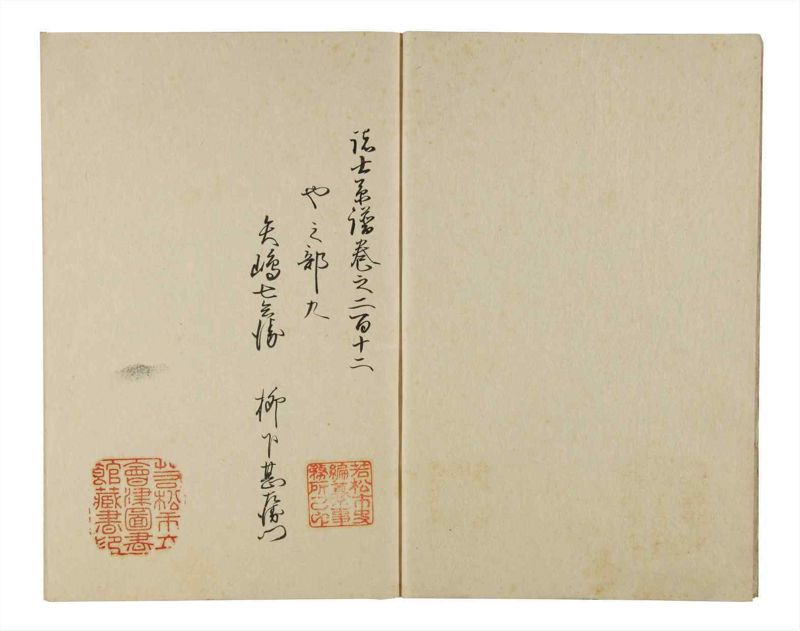 諸士系譜巻之二百十二
や之部九
矢嶋七兵衛　柳下甚左衛門
若松市史
編纂事
務所之印
若松市立
會津圖書
館藏書印